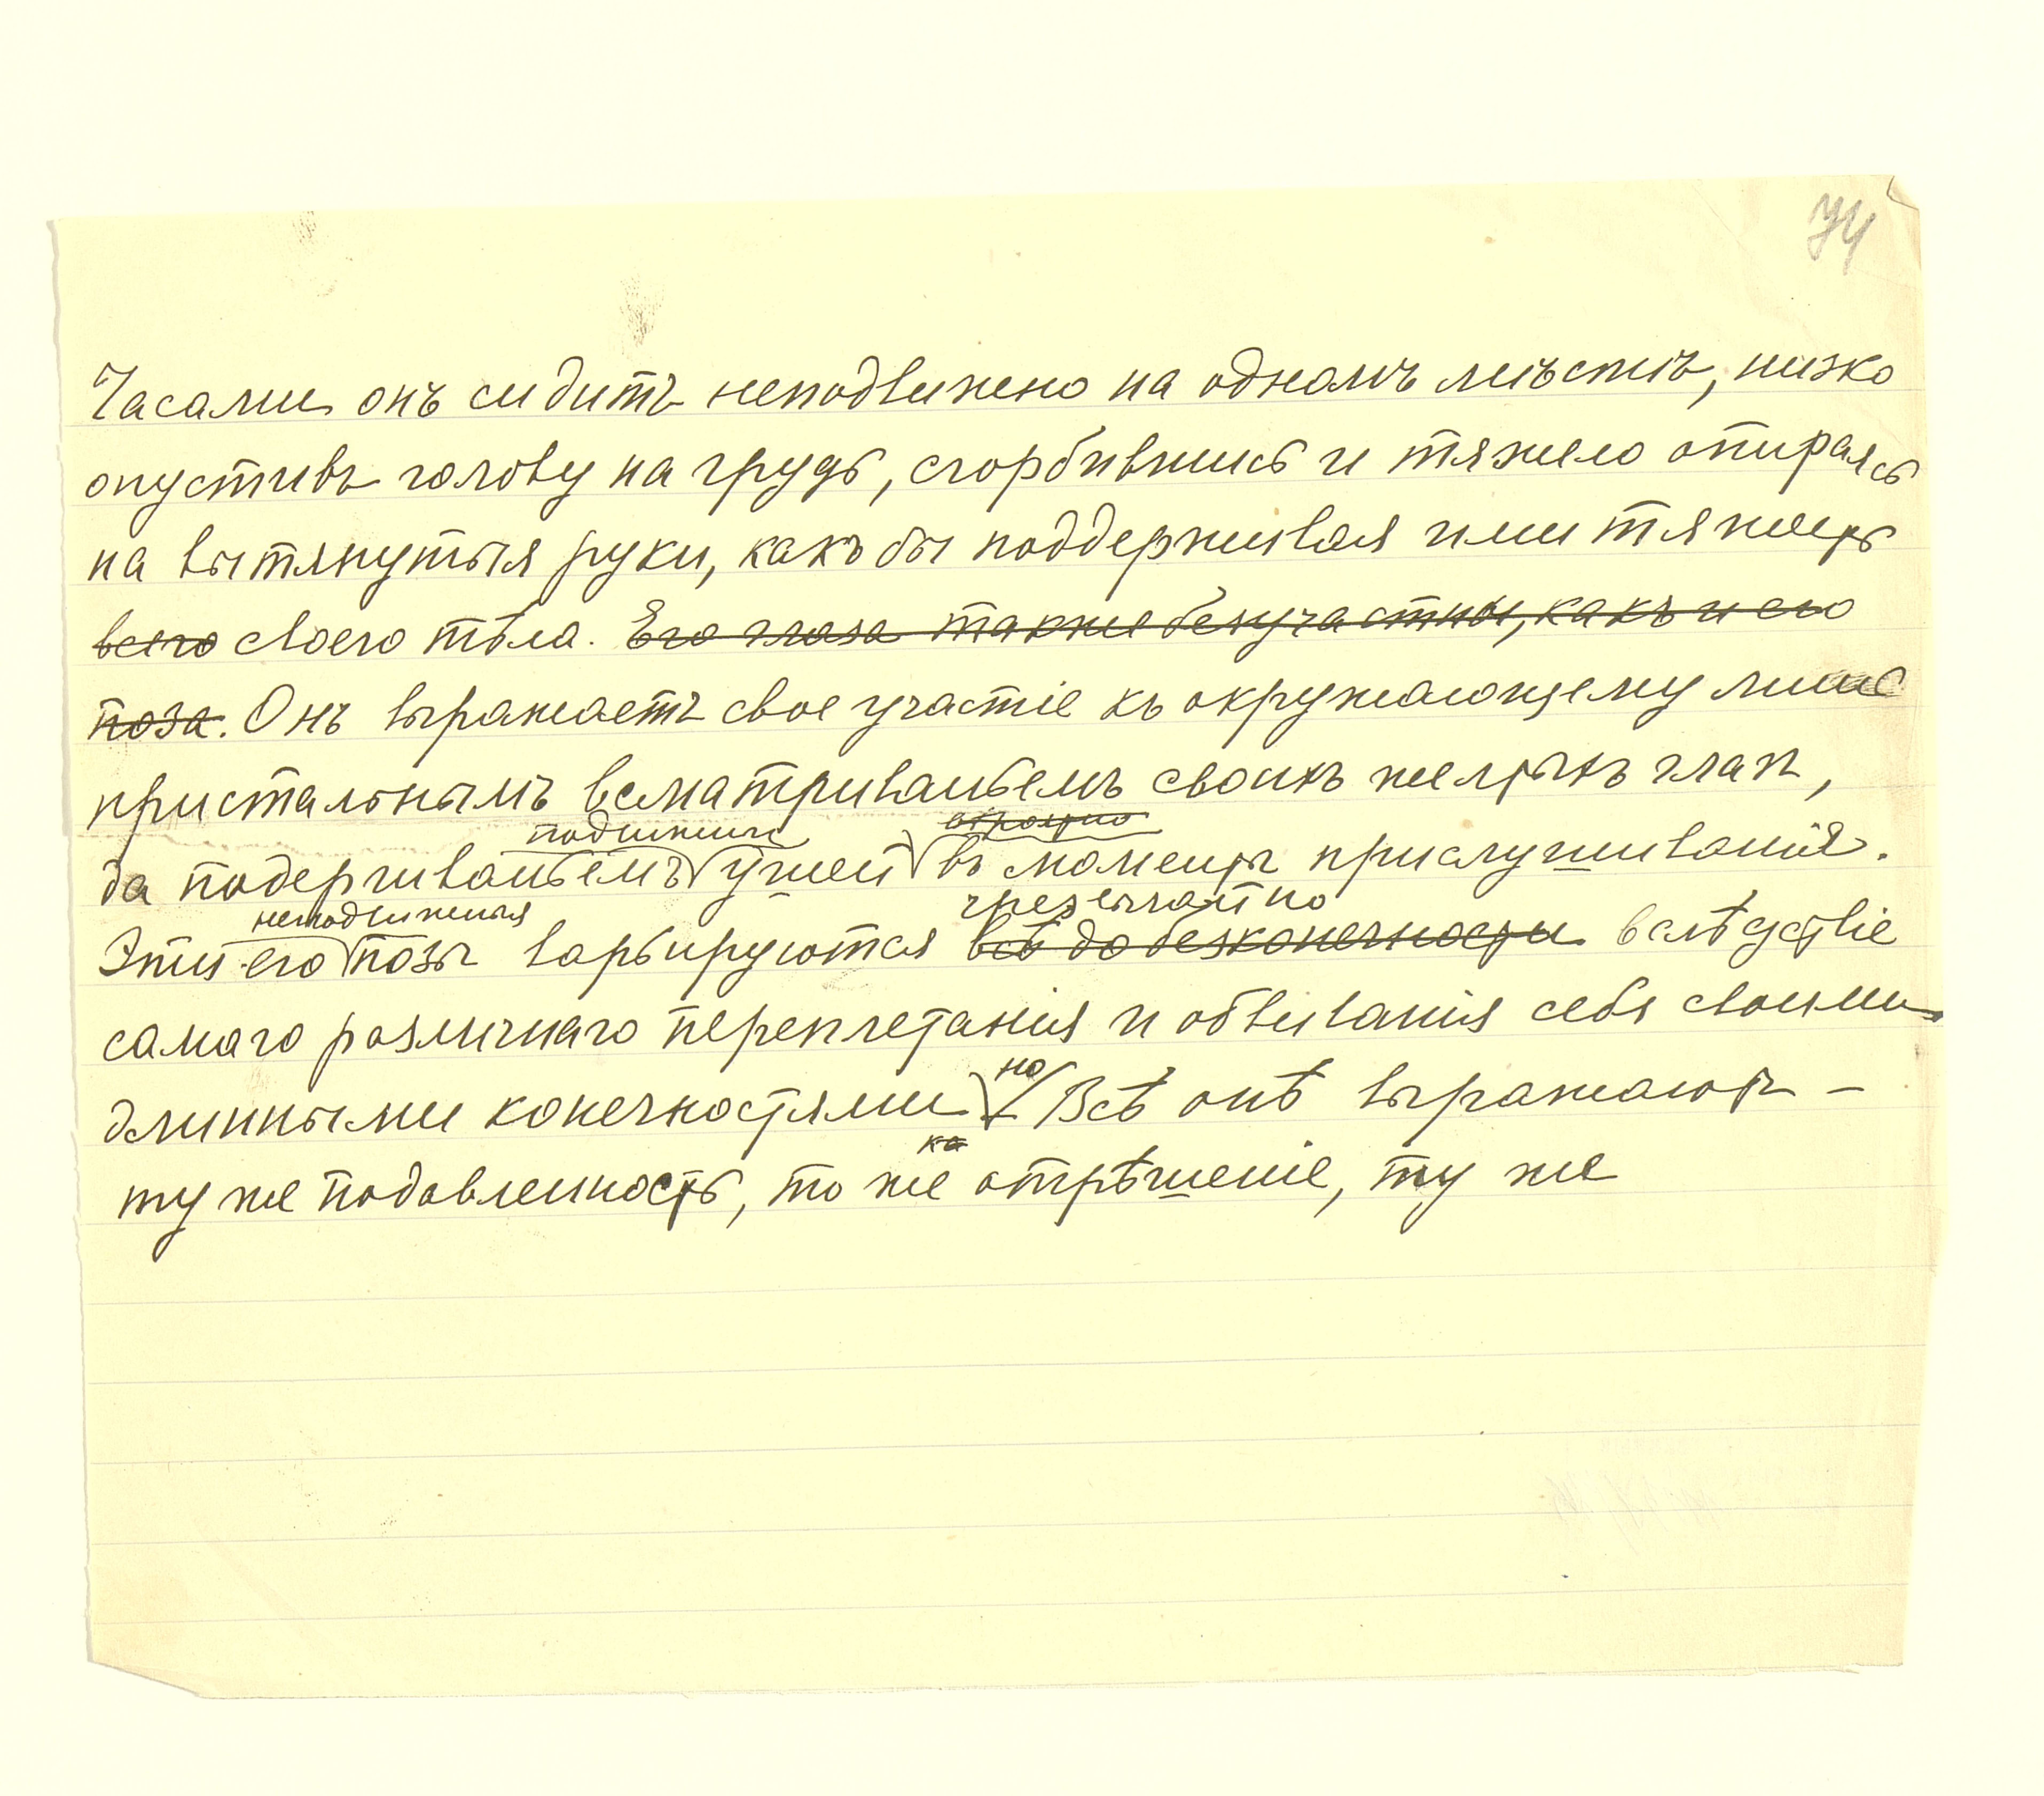 74
Часами онъ сидитъ неподвижно на одномъ мѣстѣ, низко
опустивъ голову на грудь, сгорбившись и тяжело опираясь
на вытянутыя руки, какъ бы поддерживая ими тяжесть
всего своего тѣла. Его глаза также безучастны, какъ и его
поза. Онъ выражаетъ свое участіе къ окружающему лишь
пристальнымъ всматриваньемъ своихъ желтыхъ глазъ,
подвижныхъ
да подергиваньемъ ушей въ моменты прислушиванія.
неподвижныя чрезвычайно
Эти его позы варьируются всѣ до безконечности вслѣдствіе
самаго различнаго переплетанія и обвиванія себя своими
длинными конечностями но Всѣ онѣ выражаютъ –
ка
ту же подавленность, то же отрѣшеніе, ту же